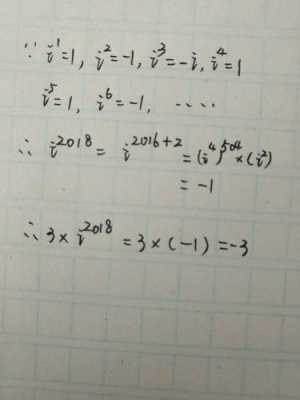 ∵ i¹=1, i²=-1, i³=-i, i⁴=1
i⁵=1, i⁶=-1, ····
∴ i²⁰¹⁸ = i²⁰¹⁶⁺² = (i⁴)⁵⁰⁴×(i²)
= -1
∴ 3×i²⁰¹⁸ = 3×(-1) =-3